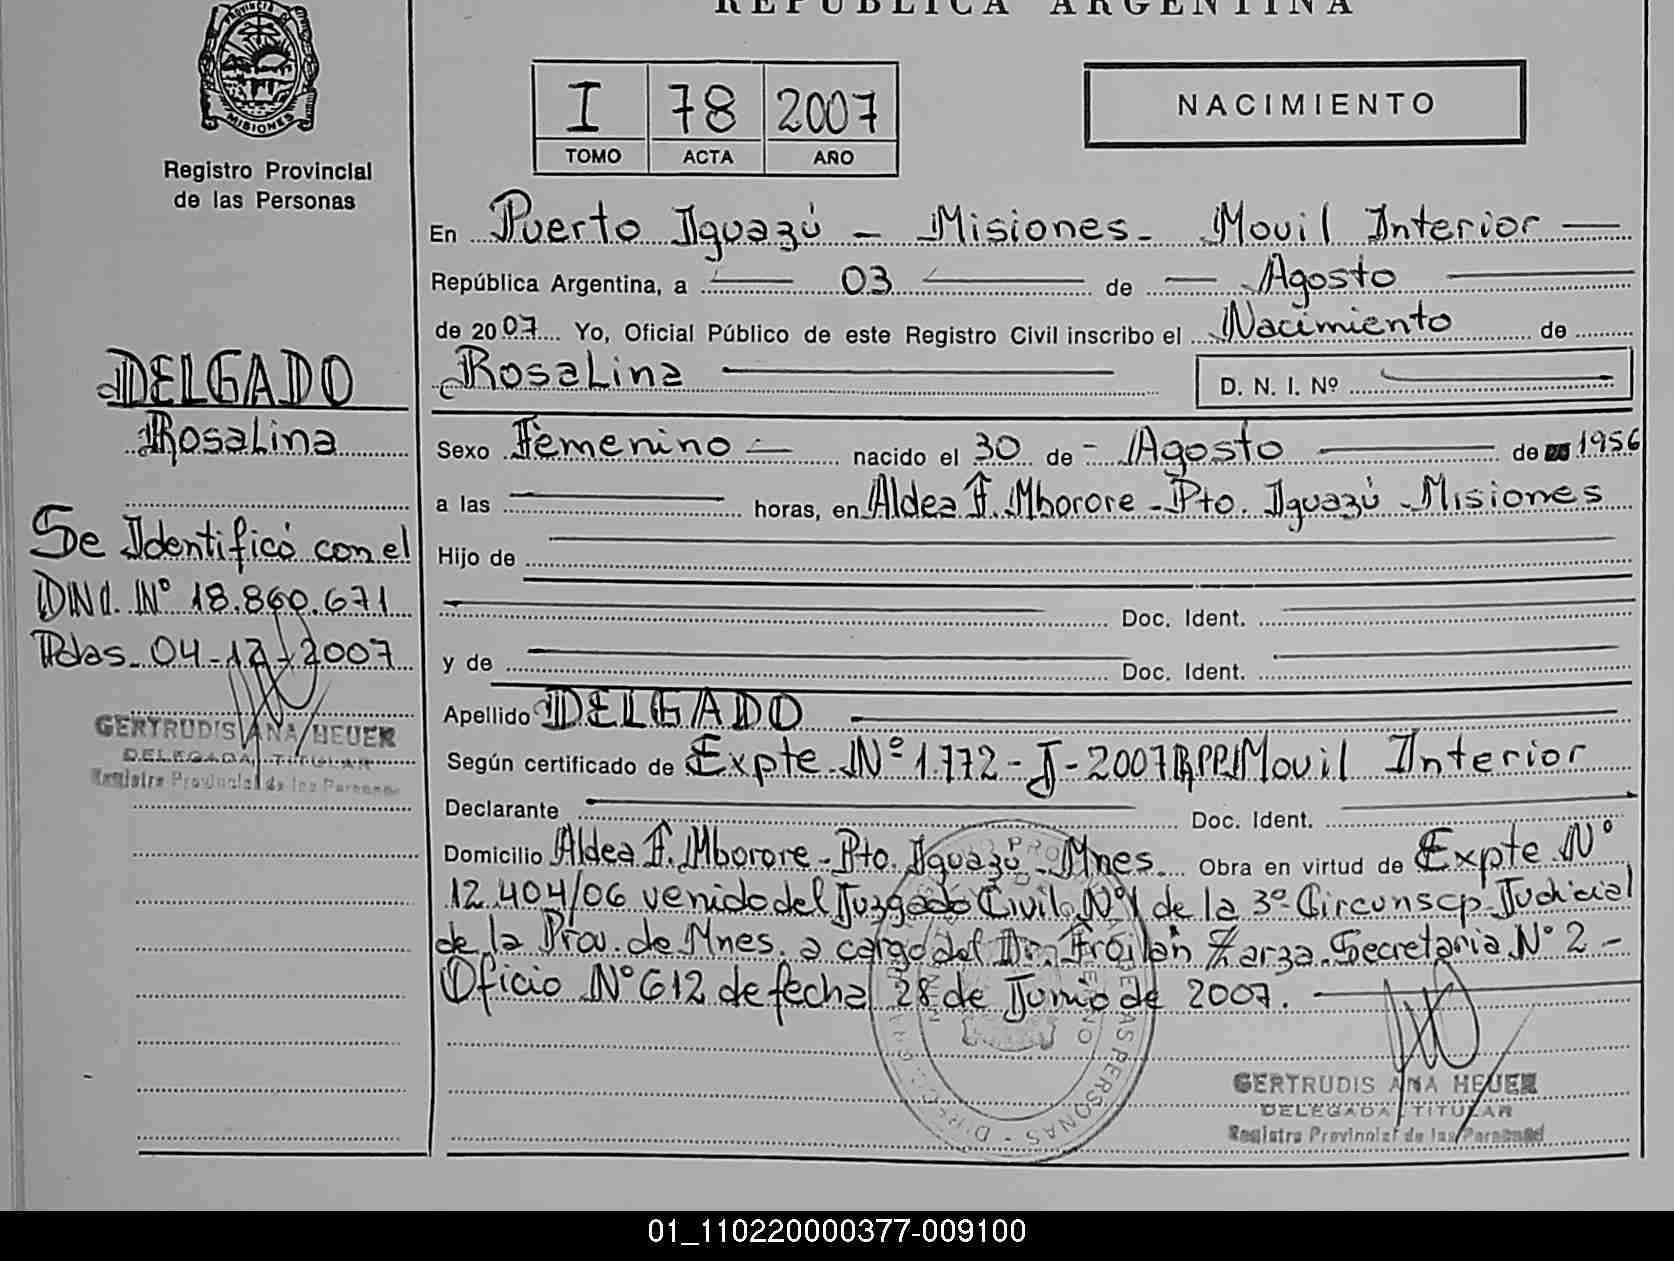 REPUBLICA ARGENTINA
PROVINCIA DE
MISIONES
Registro Provincial
de las Personas
I 78 2007
TOMO ACTA AÑO
NACIMIENTO
En Puerto Iguazú - Misiones - Movil Interior
República Argentina, a 03 de Agosto
de 2007 Yo, Oficial Público de este Registro Civil inscribo el Nacimiento de
Rosalina D. N. I. Nº
Sexo Femenino nacido el 30 de Agosto de 1956
a las horas, en Aldea F. Mborore - Pto. Iguazú - Misiones
Hijo de
Doc. Ident.
y de Doc. Ident.
Apellido DELGADO
Según certificado de Expte Nº 1.772 - J - 2007 RPP Movil Interior
Declarante Doc. Ident.
Domicilio Aldea F. Mborore - Pto. Iguazú - Mnes. Obra en virtud de Expte Nº
12.404/06 venido del Juzgado Civil Nº 1 de la 3º Circunscp. Judicial
de la Prov. de Mnes. a cargo del Dr. Froilán Zarza. Secretaria Nº 2 -
Oficio Nº 612 de fecha 28 de Junio de 2007.
GERTRUDIS ANA HEUER
DELEGADA TITULAR
Registro Provincial de las Personas
DELGADO
Rosalina
Se Identificó con el
DNI. Nº 18.860.671
Pdas. 04-12-2007
GERTRUDIS ANA HEUER
DELEGADA TITULAR
Registro Provincial de las Personas
01_110220000377-009100